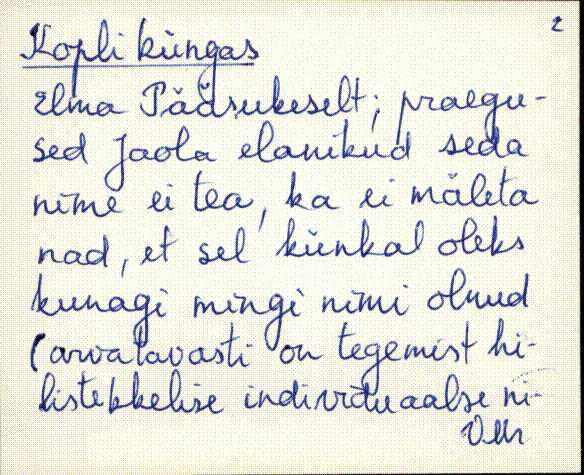 2
Kopli küngas
Elma Pääsukeselt; praegu-
sed Jaola elanikud seda
nime ei tea, ka ei mäleta
nad, et sel künkal oleks
kunagi mingi nimi olnud
(arvatavasti on tegemist hi-
listekkelise individuaalse ni-